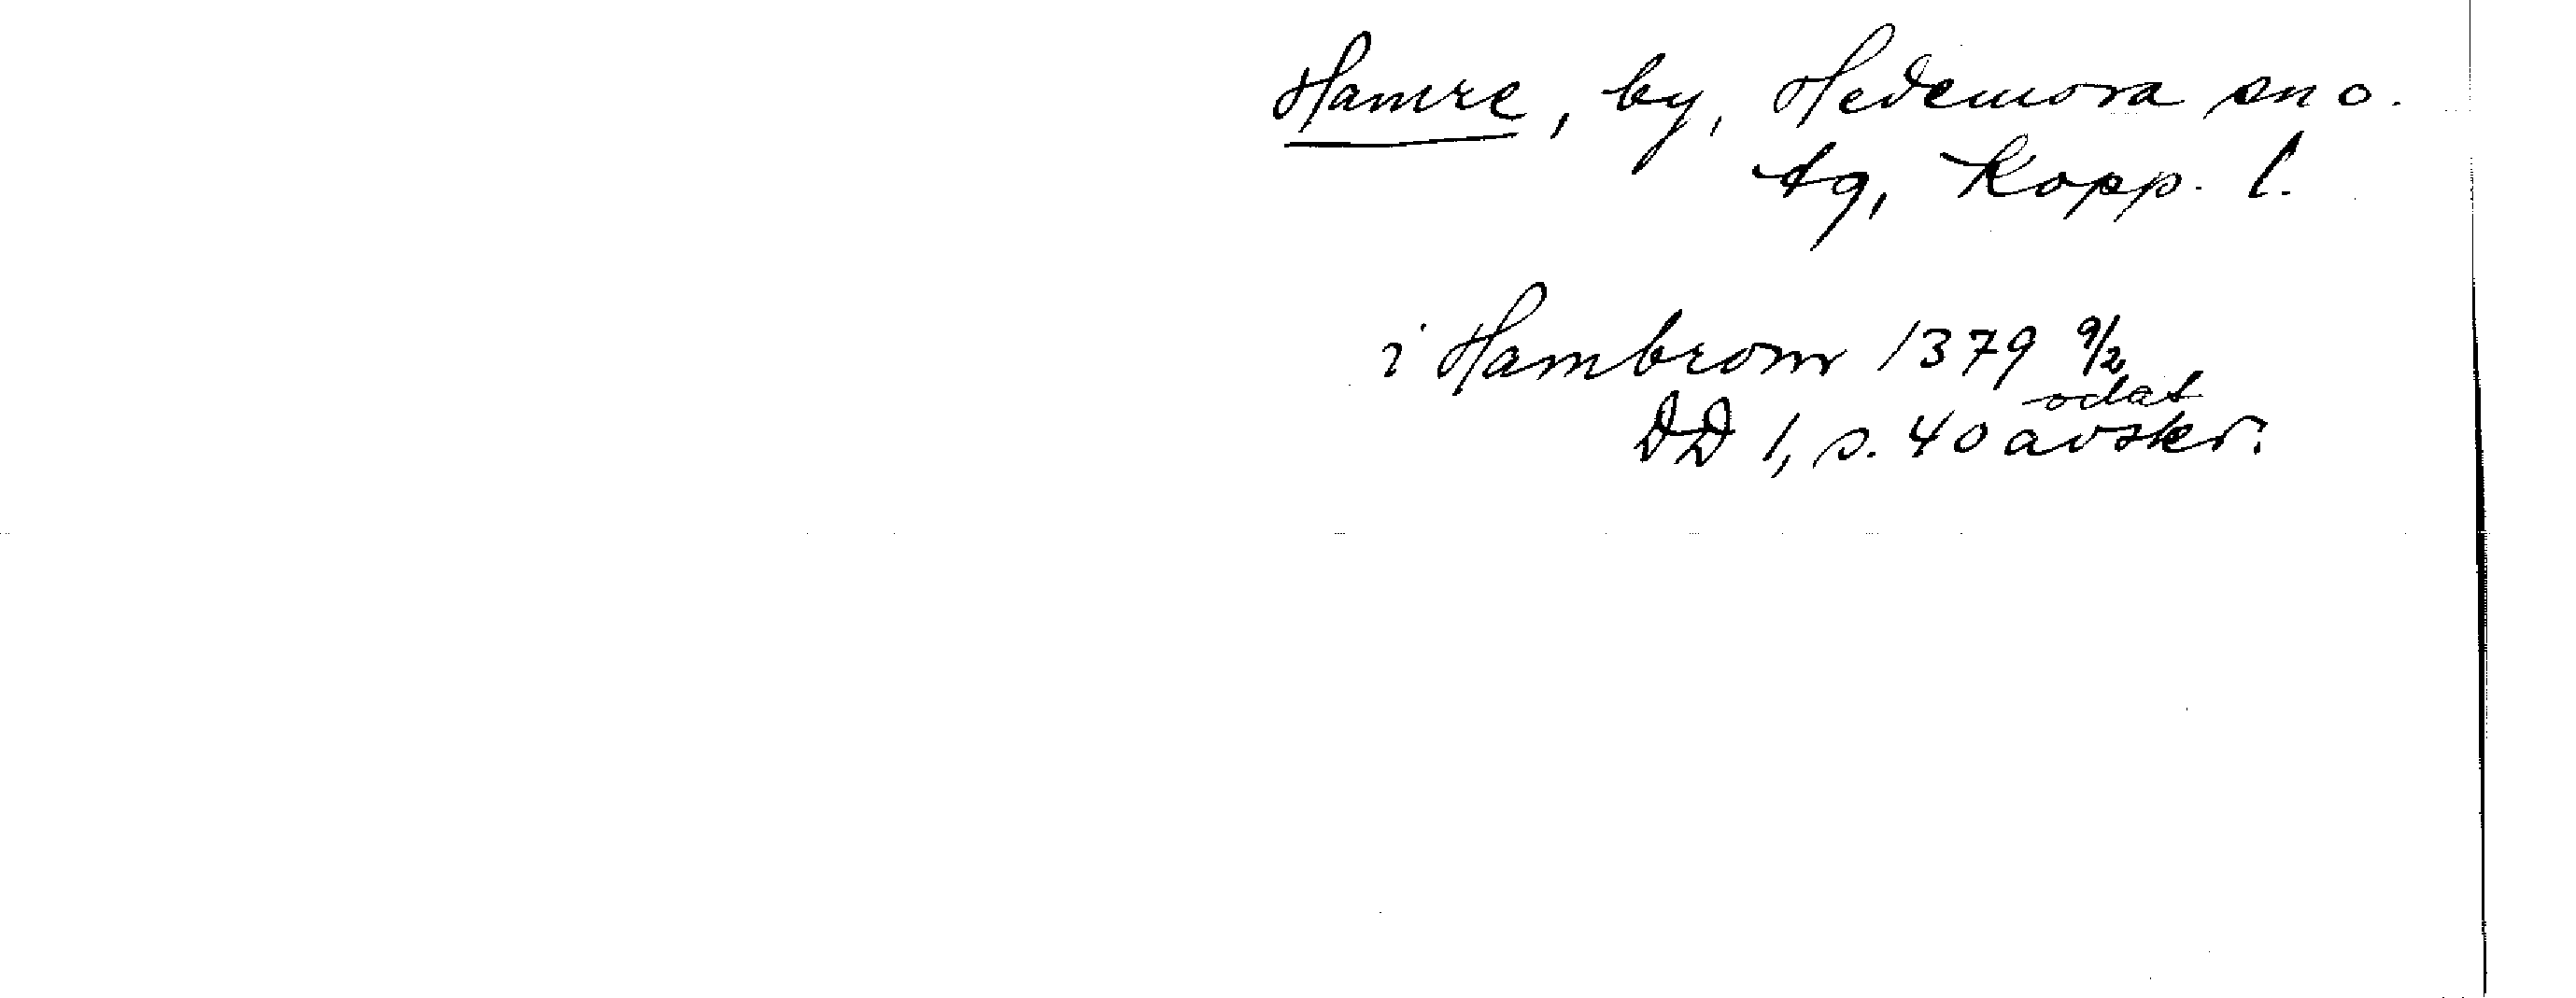 Hamre, by, Hedemora sn o.
tg, Kopp. l.
i Hambrom 1379 9/2
odat
DD 1, s. 40 avskr.